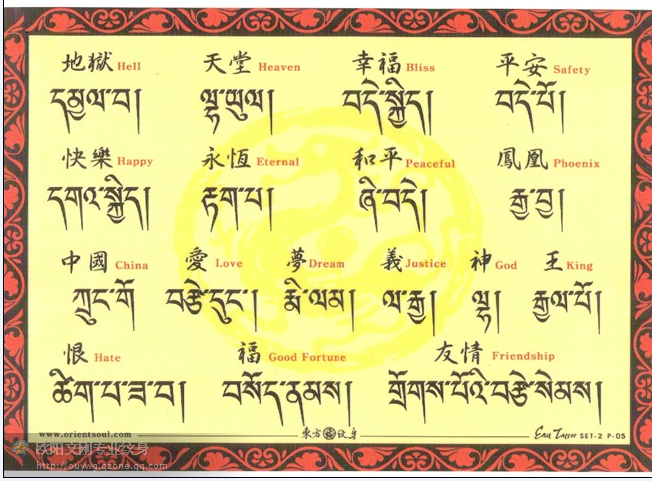 地獄 Hell 天堂 Heaven 幸福 Bliss 平安 Safety
དམྱལ་བ། ལྷ་ཡུལ། བདེ་སྐྱིད། བདེ་པོ།
快樂 Happy 永恆 Eternal 和平 Peaceful 鳳凰 Phoenix
དགའ་སྐྱིད། རྟག་པ། ཞི་བདེ། རྒྱ་བྱ།
中國 China 愛 Love 夢 Dream 義 Justice 神 God 王 King
ཀྲུང་གོ བརྩེ་དུང་། རྨི་ལམ། ལ་རྒྱ། ལྷ། རྒྱལ་པོ།
恨 Hate 福 Good Fortune 友情 Friendship
ཚིག་པ་ཟ་བ། བསོད་ནམས། གྲོགས་པོའི་བརྩེ་སེམས།
www.orientsoul.com 東方紋身 East Tattoo SET-2 P-05
欧阳文刚专业纹身
http://ouywg.qzone.qq.com